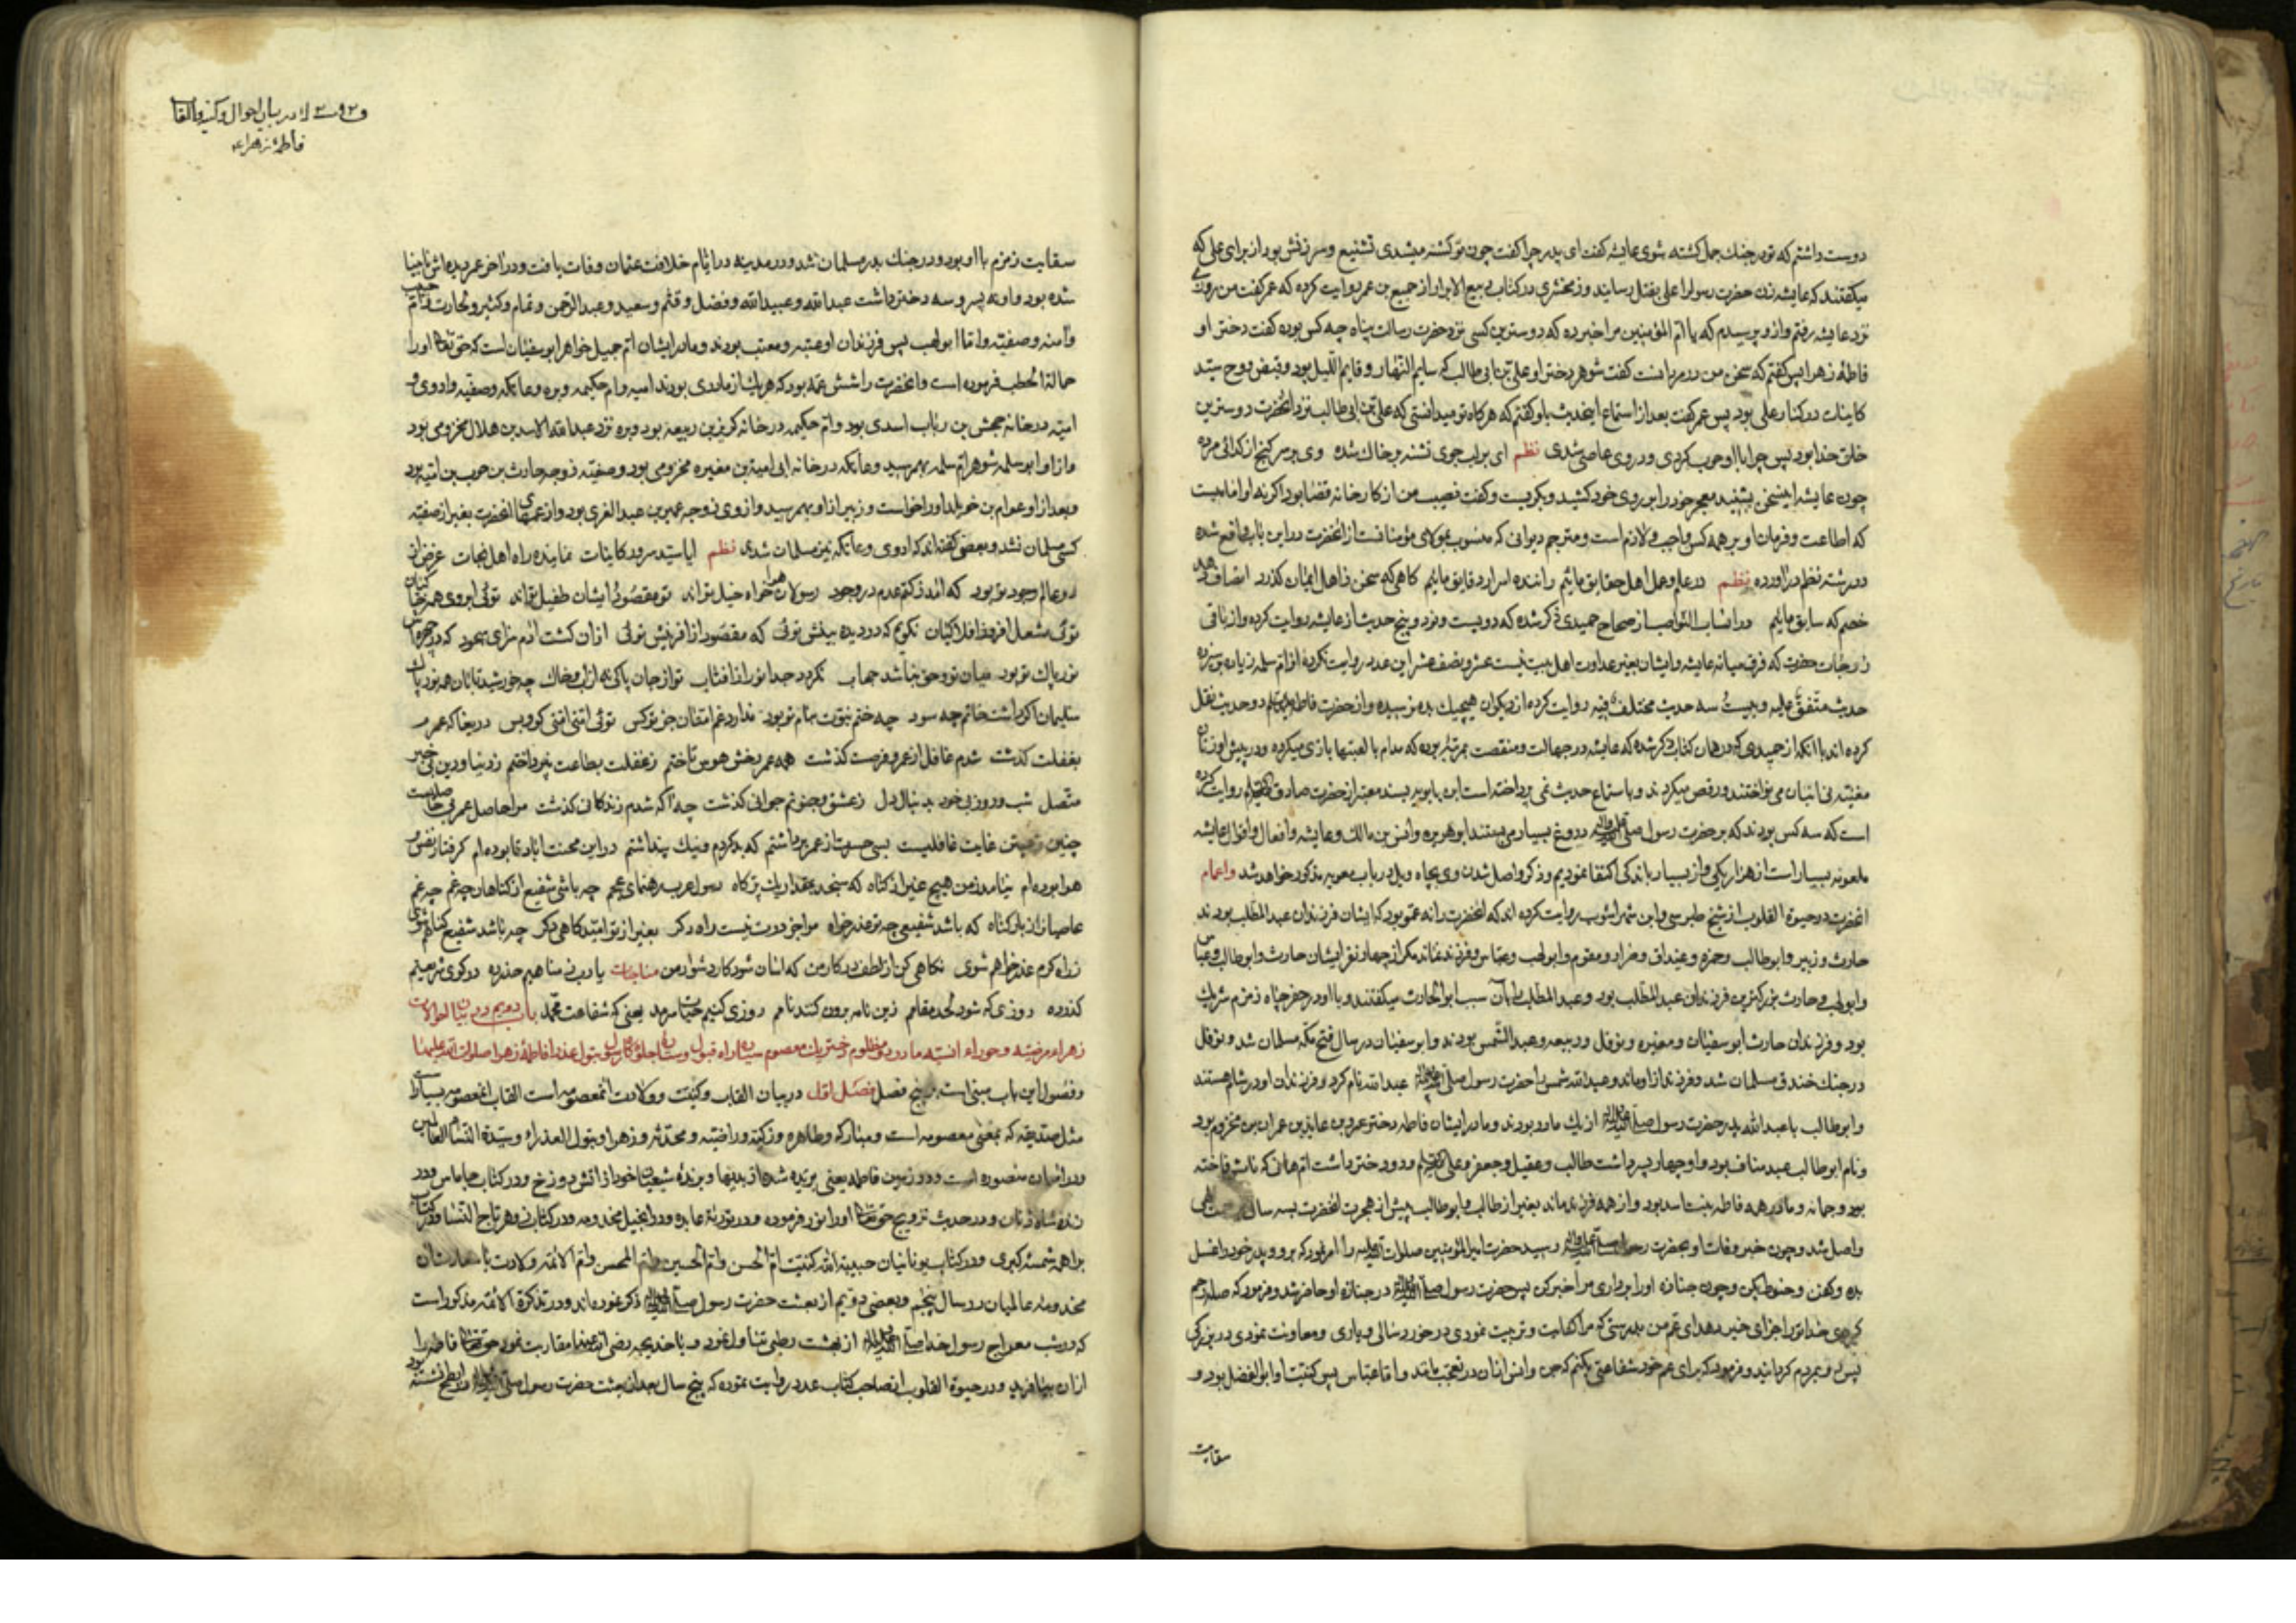 دوست داشتم که تو در جنك جمل کشته شوی عایشه کفت ای پدر چرا کفت چون تو کشته میشدی تشنیع و سرزنش بود از برای علی که
میکفتند که عایشه زن حضرت رسول را علی بقتل رسانید و زمخشری در کتاب ربیع الابرار از جمیع بن عمر روایت کرده که عمر کفت من روزی
نزد عایشه رفتم و ازو پرسیدم که یا ام المؤمنین مرا خبر ده که دوسترین کسی نزد حضرت رسالت پناه چه کس بوده کفت دختر او
فاطمهٔ زهرا پس کفتم که سخن من در مردانست کفت شوهر دختر او علی بن ابی طالب که صایم النهار و قایم اللیل بود و قبض روح سید
کاینات در کنار علی بود پس عمر کفت بعد از استماع اینحدیث باو کفتم که هرکاه تو میدانستی که علی بن ابی طالب نزد انحضرت دوسترین
خلق خدا بود پس چرا با او حرب کردی و در وی عاصی شدی نظم ای بر لب جوی تشنه بر خاك شده وی بر سر کنج از کدائی مرده
چون عایشه اینسخن بشنید معجر خود را بر روی خود کشید و بکریست و کفت نصیب من از کارخانه قضا بود اکر نه او امامیست
که اطاعت و فرمان او بر همه کس واجب و لازم است و مترجم دیوانی که منسوب بمولای مؤمنانست از انحضرت در این باب واقع شده
در رشته نظم در اورده نظم در علم و عمل اهل حقایق مائیم راننده اسرار دقایق مائیم کاهی که سخن ز اهل ایمان کذرد انصاف دهد
خصم که سابق مائیم و در انساب النواصب از صحاح حمیدی ذکر شده که دویست و نود و پنج حدیث از عایشه روایت کرده و از باقی
زوجات حضرت که فرق میانه عایشه و ایشان بغیر عداوت اهل بیت نیست عشر و نصف عشر این عدد روایت نکرده از ام سلمه زیاده بر سیزده
حدیث متفق علیه و بیست سه حدیث مختلف فیه روایت کرده از دیکران هیچیك بده نرسیده و از حضرت فاطمه علیها السلم دو حدیث نقل
کرده اند با انکه از حمیدی که در همان کتاب ذکر شده که عایشه در جهالت و منقصت بمرتبه بوده که مدام با لعبتها بازی میکرده و در پیش او زنان
مغنیه نی انبان می نواختند و رقص میکردند و باستماع حدیث نمی پرداخته است ابن بابویه بسند معتبر از حضرت صادق علیه السلم روایت کرده
است که سه کس بودند که بر حضرت رسول صلی الله علیه واله دروغ بسیار می بستند ابو هریره و انس بن مالك و عایشه و افعال و اقوال عایشه
ملعونه بسیار است از هزار یکی و از بسیار باندکی اکتفا نمودیم و ذکر واصل شدن وی بچاه ویل در باب معویه مذکور خواهد شد و اعمام
انحضرت در حیوة القلوب از شیخ طبرسی و ابن شهر اشوب روایت کرده اند که انحضرت را نه عم بود که ایشان فرزندان عبد المطلب بودند
حارث و زبیر و ابو طالب و حمزه و غیداق و ضرار و مقوم و ابو لهب و عباس و فرزند نماند مکر از چهار نفر ایشان حارث و ابو طالب و عباس
و ابو لهب و حارث بزرکترین فرزندان عبد المطلب بود و عبد المطلب را بان سبب ابو الحارث میکفتند و با او در حفر چاه زمزم شریك
بود و فرزندان حارث ابو سفیان و مغیره و نوفل و ربیعه و عبد الشمس بودند و ابو سفیان در سال فتح مکه مسلمان شد و نوفل
در جنك خندق مسلمان شد و فرزند از او ماند و عبد الشمس را حضرت رسول صلی الله علیه واله عبد الله نام کرد و فرزندان او در شام هستند
و ابو طالب با عبد الله پدر حضرت رسول صلی الله علیه واله از یك مادر بودند و مادر ایشان فاطمه دختر عمرو بن عایذ بن عمران بن مخزوم بود
و نام ابو طالب عبد مناف بود و او چهار پسر داشت طالب و عقیل و جعفر و علی علیه السلم و دو دختر داشت ام هانی که نامش فاخته
بود و جمانه و مادر همه فاطمه بنت اسد بود و از همه فرزند ماند بغیر از طالب و ابو طالب پیش از هجرت انحضرت بسه سال
واصل شد و چون خبر وفات او بحضرت رسول صلی الله علیه واله رسید حضرت امیر المؤمنین صلوات الله علیه را امر نمود که برو و پدر خود را غسل
بده و کفن و حنوط بکن و چون جنازه او را برداری مرا خبر کن پس حضرت رسول صلی الله علیه واله در جنازه او حاضر شد و فرمود که صله رحم
کردی خدا تو را جزای خیر دهد ای عم من بدرستی که مرا کفالت و تربیت نمودی در خورد سالی و یاری و معاونت نمودی در بزرکی
پس رو بمردم کردانید و فرمود که برای عم خود شفاعتی بکنم که جن و انس از ان در تعجب بمانند و اما عباس پس کنیت او ابو الفضل بود و
سقایت
در بیان احوال و کنیه و القاب
فاطمهٔ زهراء ع
سقایت زمزم با او بود و در جنك بدر مسلمان شد و در مدینه در ایام خلافت عثمان وفات یافت و در اخر عمر دیده اش نابینا
شده بود و او نه پسر و سه دختر داشت عبد الله و عبید الله و فضل و قثم و سعید و عبد الرحمن و تمام و کثیر و حارث و ام حبیب
و امنه و صفیه و اما ابو لهب پس فرزندان او عتبه و معتب بودند و مادر ایشان ام جمیل خواهر ابو سفیان است که حق تعالی او را
حمالة الحطب فرموده است و انحضرت را شش عمه بود که هر یك از مادری بودند امیه و ام حکیمه و بره و عاتکه و صفیه و اروی و
امیه در خانه جحش بن رباب اسدی بود و ام حکیمه در خانه کریز بن ربیعه بود و بره نزد عبد الله الاسد بن هلال مخزومی بود
و از او ابو سلمه شوهر ام سلمه بهمرسید و عاتکه در خانه ابی امیة بن مغیره مخزومی بود و صفیه زوجه حارث بن حرب بن امیه بود
و بعد از او عوام بن خویلد او را خواست و زبیر از او بهمرسید و اروی زوجه عمیر بن عبد العزی بود و از عمهای انحضرت بغیر از صفیه
کسی مسلمان نشد و بعضی کفته اند که اروی و عاتکه نیز مسلمان شدند نظم ایا سید سرور کاینات نماینده راه اهل نجات غرض از
دو عالم وجود تو بود که امد ز کتم عدم در وجود رسولان همراه خیل تواند تو مقصود و ایشان طفیل تواند
توئی مشعل افروز افلاکیان نکویم که در دیده بینش توئی که مقصود از افرینش توئی از ان کشت ادم سزای سجود که در چهره اش
نور پاك تو بود میان تو و حق نباشد حجاب نکردد جدا نور از افتاب تو از جان پاکی نه از اب و خاك چه خورشید تابان همه نور پاك
سلیمان اکر داشت خاتم چه سود چه ختم نبوت بنام تو بود ندارد غم امتان جز تو کس توئی امتی امتی کو و بس دریغا که عمر
بغفلت کذشت شدم غافل از عمر و فرصت کذشت همه عمر رخش هوس تاختم ز غفلت بطاعت نپرداختم ز دنیا و دین بی خبر
متصل شب و روز بی خود بدنبال دل ز عشق و جنونم جوانی کذشت چه اکه شدم زندکانی کذشت مرا حاصل عمر بی حاصلیست
چنین زیستن غایت غافلیست بسی حسرت از عمر برداشتم که بد کردم و نیك پنداشتم در این محنت اباد تا بوده ام کرفتار نفس و
هوا بوده ام نیامد ز من هیچ غیر از کناه که سنجد بمقدار یك پر کاه رسول عرب رهنمای عجم چه باشی شفیع از کناهان چه غم چه غم
عاصیان از بار کناه که باشد شفیعی چه تو عذر خواه مرا جز درت نیست راه دکر بغیر از تو امیدکاهی دکر چه باشد شفیع کناهم شوی
ز راه کرم عذر خواهم شوی نکاهی کن از لطف در کار من که اسان شود کار دشوار من مناجات یا رب ز مناهیم حذر ده در کوی شریعتم
کذر ده روزی که شود لحد مقامم زین نامه برون کنند نامم روزی کنیم یعنی که شفاعت محمد باب دویم در بیان
زهراء مرضیه و حوراء انسیه مادر دو مظلوم و دختر یك معصوم بتول عذرا فاطمهٔ زهرا صلوات الله علیها
و فصول این باب مبنی است بر پنج فصل فصل اول در بیان القاب و کنیت و ولادت انمعصومه است القاب انمعصومه بسیار است
مثل صدیقه که بمعنی معصومه است و مبارکه و طاهره و زکیه و راضیه و محدثه و زهرا و بتول العذراء و سیدة النساء العالمین
و در اسمان منصوره است و در زمین فاطمه یعنی بریده شده از بدیها و برنده شیعیان خود از اتش دوزخ و در کتاب جاماس
زنده شاه زنان و در حدیث تزویج حق تعالی او را نور فرموده و در توریة عابده و در انجیل مخدومه و در کتاب
براهمه شمسه کبری و در کتاب یونانیان حبیبة الله کنیت ام الحسن و ام الحسین و ام المحسن و ام الائمه ولادت با سعادت ان
مخدومه عالمیان در سال پنجم و بعضی دویم از بعثت حضرت رسول صلی الله علیه واله ذکر نموده اند و در تذکرة الائمه مذکور است
که در شب معراج رسول خدا صلی الله علیه واله از بهشت رطبی تناول نمود و با خدیجه رضی الله عنها مقاربت نمود حق تعالی فاطمه را
از ان بیافرید و در حیوة القلوب از صاحب کتاب عدد روایت نموده که پنج سال بعد از بعثت حضرت رسول صلی الله علیه واله در ابطح نشسته بود